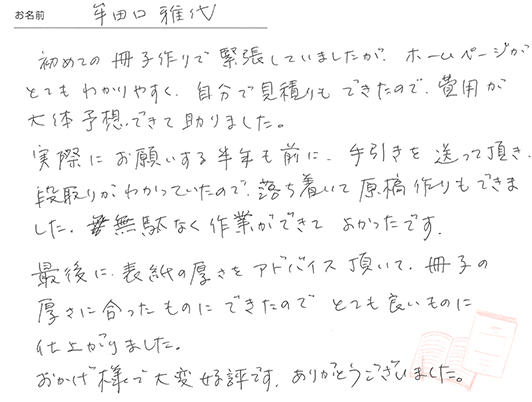 お名前 牟田口 雅代
初めての冊子作りで緊張していましたが、ホームページが
とてもわかりやすく、自分で見積りもできたので、費用が
大体予想できて助りました。
実際にお願いする半年も前に、手引きを送って頂き、
段取りがわかっていたので、落ち着いて原稿作りもできま
した。無駄なく作業ができて よかったです。
最後に、表紙の厚さをアドバイス頂いて、冊子の
厚さに合ったものにできたので とても良いものに
仕上がりました。
おかげ様で大変好評です。ありがとうございました。